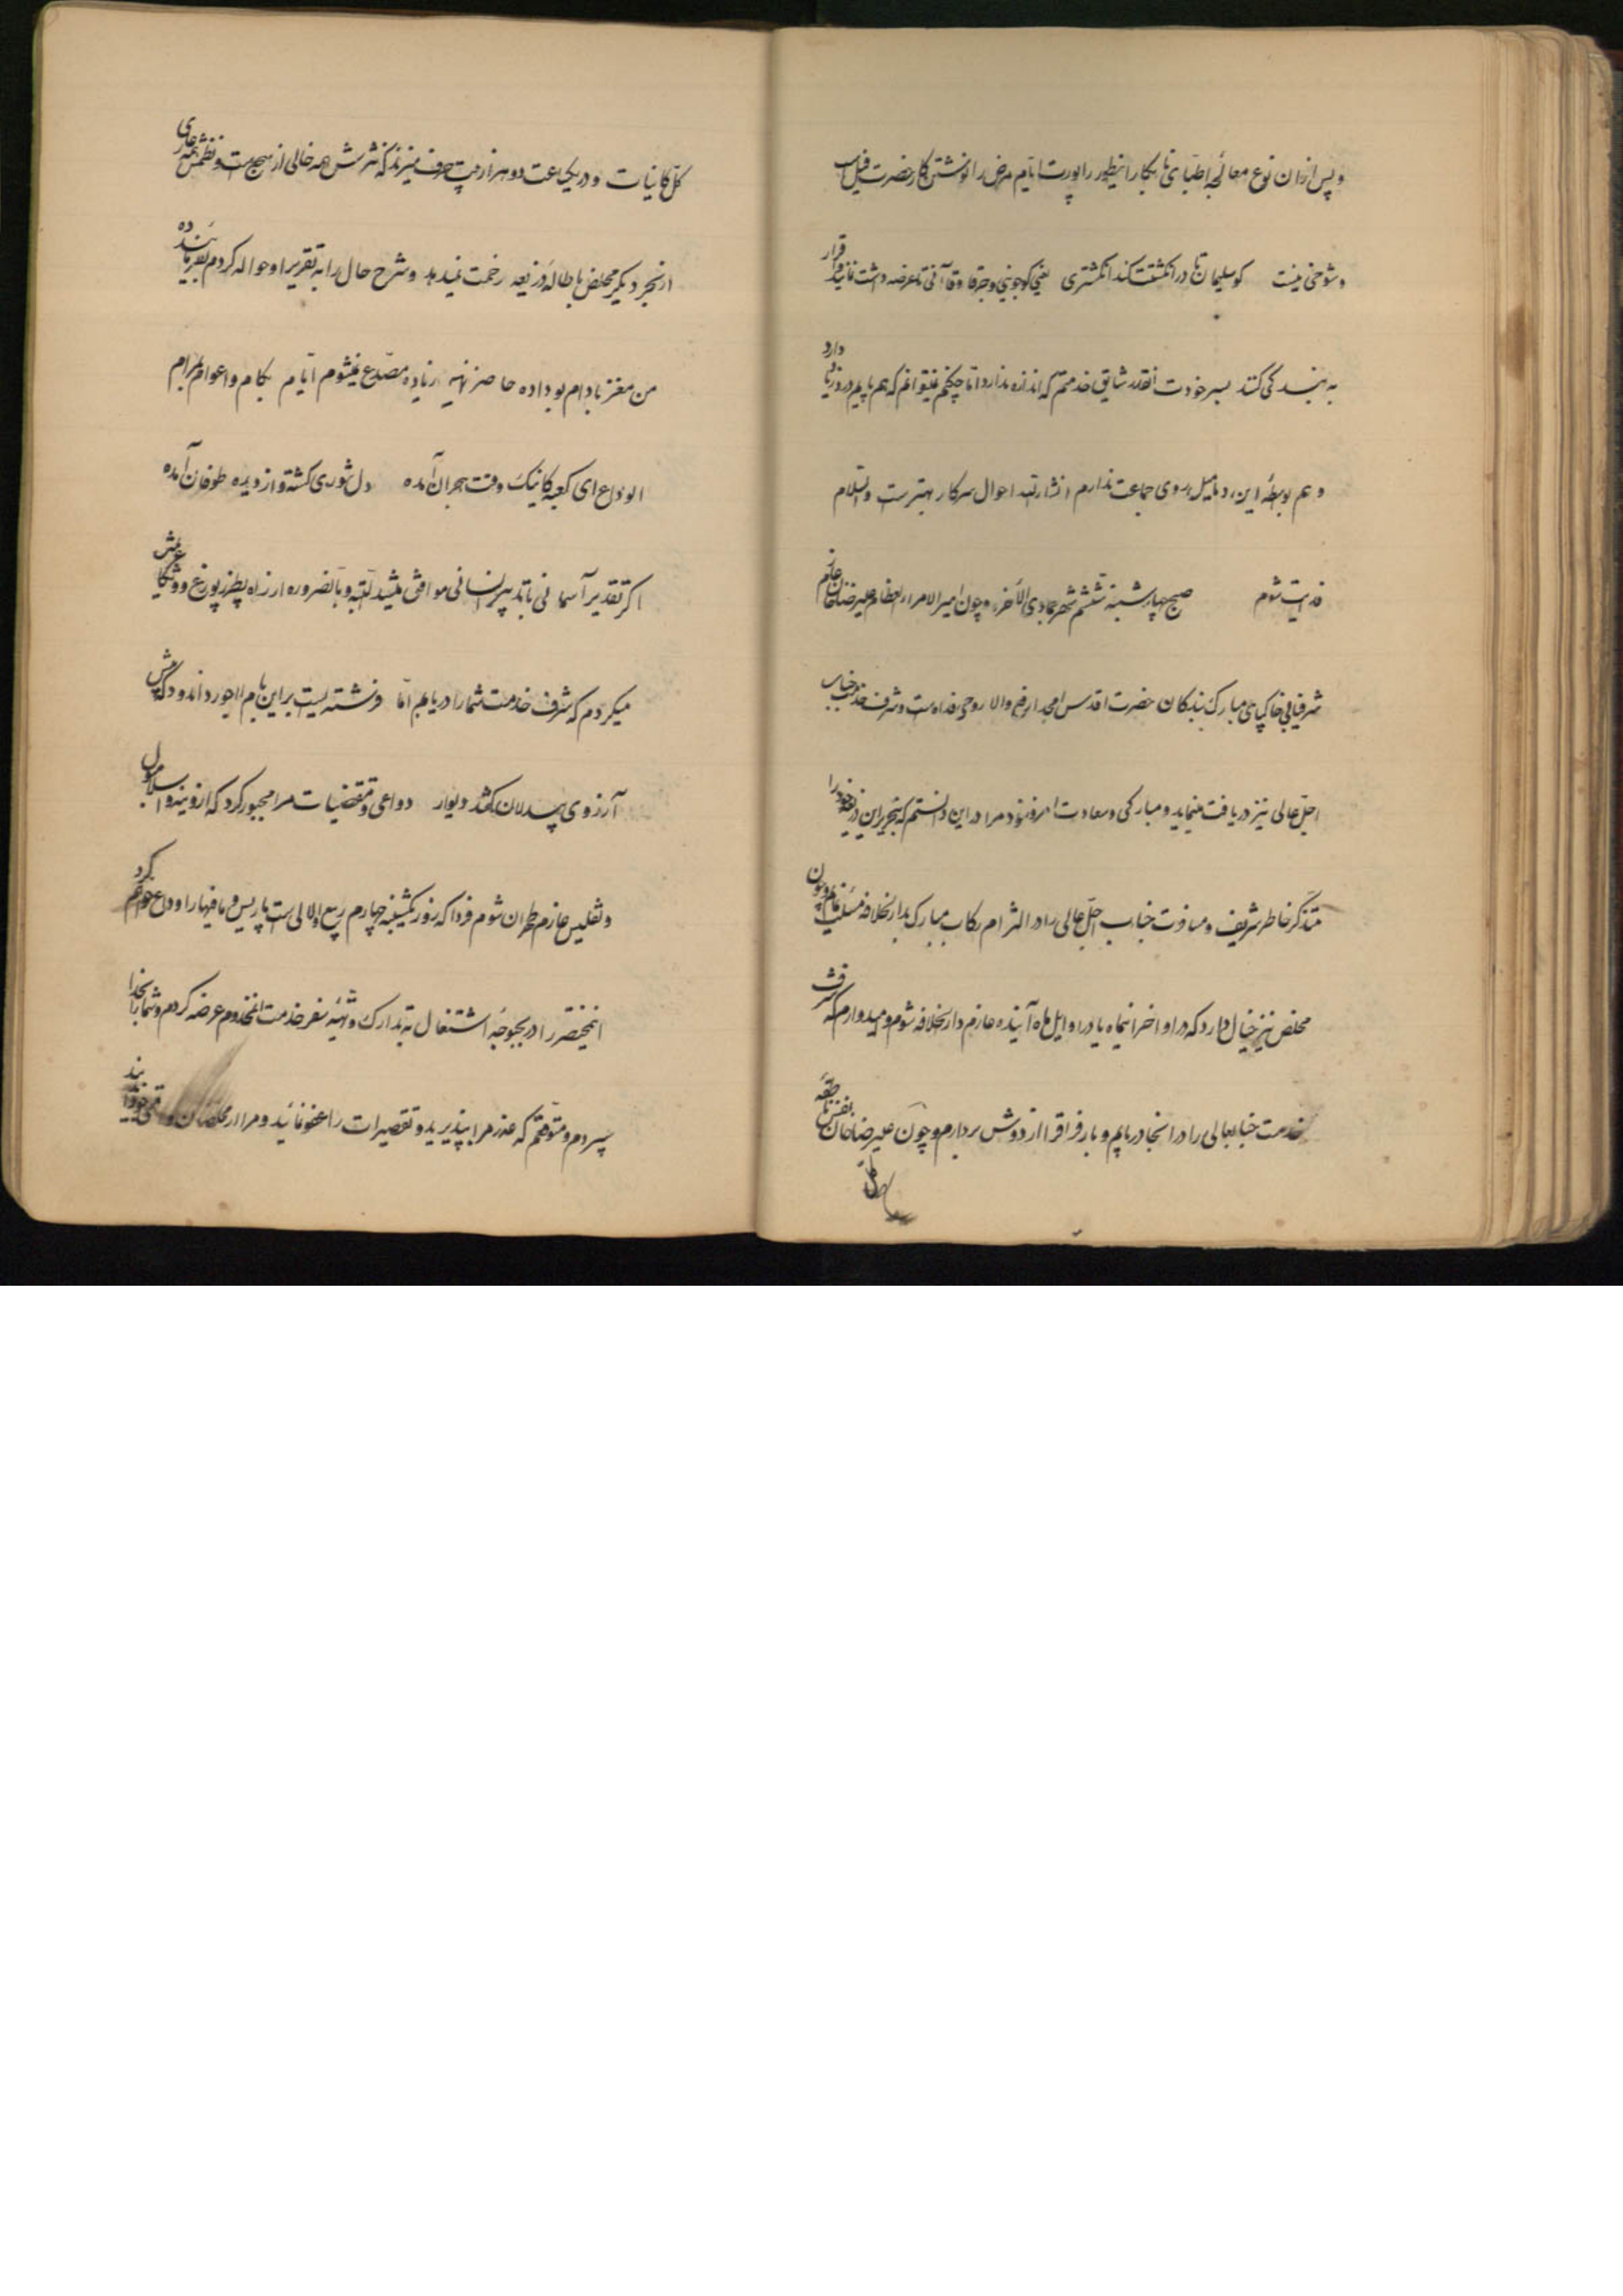 و پس از ان نوع معالجه اطبای نابکار اینطور راپورت ایام مرض را نوشتن کار حضرت فیل است
و شوخی نیست کو سلیمان تا در انگشتت کند انگشتری یعنی کو جوینی و جرقا و قاآنی تا عرضه داشت نمایند و اقرار
به بندگی کنند بسر خودت انقدر شایق خدمتم که اندازه ندارد اما چکنم نمیتوانم که هم پایم درد زیاد دارد
و هم بواسطهٔ این دمامیل روی جماعت ندارم انشاء الله احوال سرکار بهتر است والسلام
فدایت شوم صبح چهارشنبه ششم شهر جمادی الآخره و چون امیر الامراء العظام علیرضا خان عازم
شرفیابی خاکپای مبارک بندگان حضرت اقدس امجد ارفع والا روحی فداه است و شرف خدمت جناب
اجل عالی نیز دریافت مینماید و مبارکی و سعادت امروز خود مرا در این دانستم که بتحریر این ذریعه خود را
متذکر خاطر شریف و مسافرت جناب اجل عالی را در التزام رکاب مبارک بدار الخلافه مسئلت نمایم و چون
مخلص نیز خیال دارد که در اواخر اینماه یا در اوایل ماه آینده عازم دار الخلافه شوم و امیدوارم که شرف
خدمت جنابعالی را در انجا دریابم و بار فراق را از دوش بردارم و چون علیرضا خان بنفسه ناطقه
کل کاینات و در یکساعت دو هزار مپ حرف میزند که نثرش همه خالی از سجع است و نظمش همه عاری
از بحر دیگر مخلص باطالهٔ ذریعه زحمت نمیدهد و شرح حال را به تقریر او حواله کردم بفرمایند
من مغز بادام بو داده حاضر نمایند زیاده مصدع نمیشوم ایام بکام و اعوام بمرام
الوداع ای کعبه کاینک وقت هجران آمده دل شوری گشته و از دیده طوفان آمده
اگر تقدیر آسمانی با تدبیر انسانی موافق میشد البته و بالضروره از راه پطرزبورغ و
میکردم که شرف خدمت شما را دریابم اما فرشته ایست براین بام لاجورد اندود که پیش
آرزوی بیدلان کشد دیوار دواعی و مقتضیات مرا مجبور کرد که از وینه و اسلامبول
و تفلیس عازم طهران شوم فردا که روز یکشنبه چهارم ربیع الاول است پاریس و ما فیها را وداع خواهم کرد
اینمختصر را در بحبوحهٔ اشتغال به تدارک و تهیهٔ سفر خدمت انمخدوم عرضه کردم و شما را بخدا
سپردم و متوقعم که عذر مرا بپذیرید و تقصیرات را عفو نمائید و مرا از مخلصان